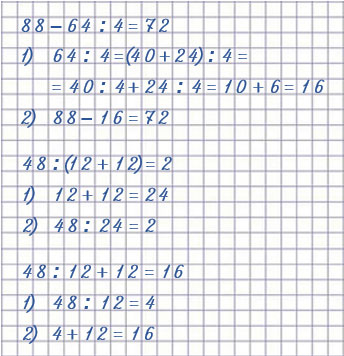 88 − 64 : 4 = 72
1) 64 : 4 = (40 + 24) : 4 =
= 40 : 4 + 24 : 4 = 10 + 6 = 16
2) 88 − 16 = 72
48 : (12 + 12) = 2
1) 12 + 12 = 24
2) 48 : 24 = 2
48 : 12 + 12 = 16
1) 48 : 12 = 4
2) 4 + 12 = 16